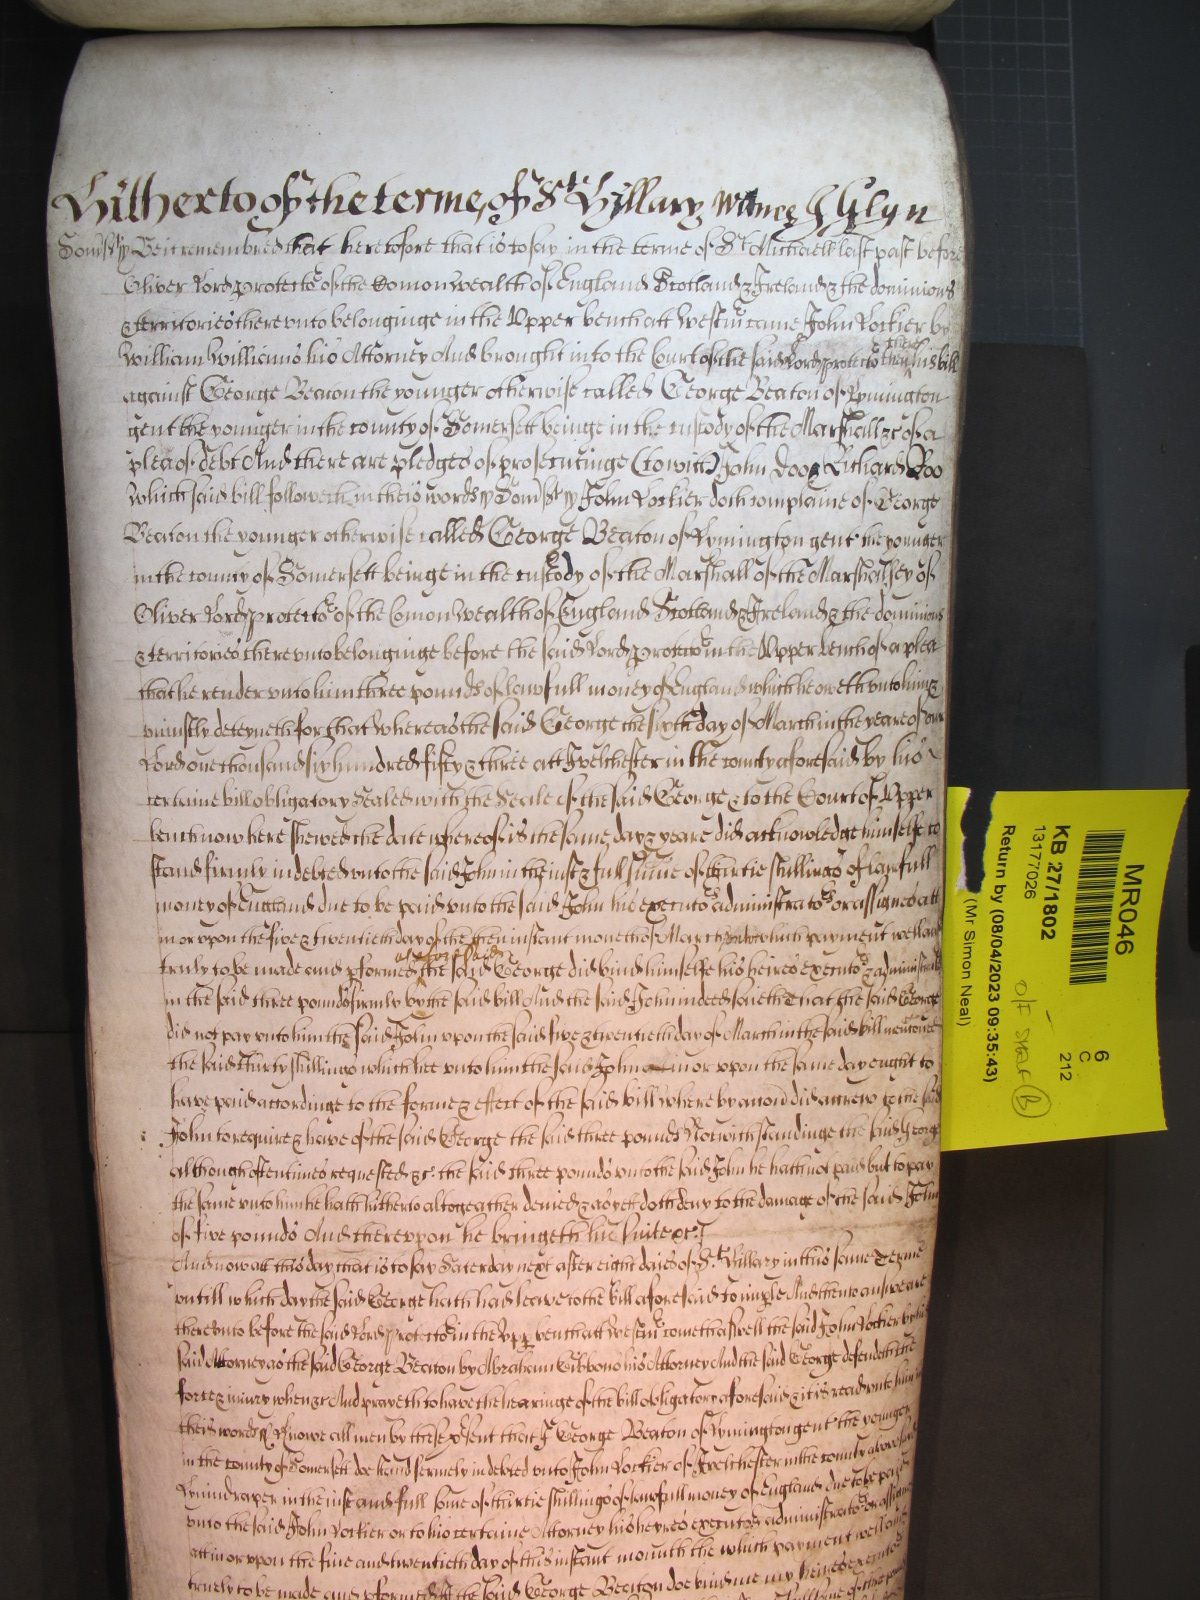 Hitherto of the terme of St Hillary Witnes J Glyn
Somst ss Be it remembred that heretofore that is to say in the terme of St Michaell last past before
Oliver Lord protector of the Comon Wealth of England Scotland & Ireland & the dominions
& territories there vnto belonginge in the Vpper bench att Westmr came John Lockier by
William Williams his Attorney And brought into the Court of the said Lord protector then there his bill
against George Beaton the younger otherwise called George Beaton of Lymington
gent the younger in the county of Somersett beinge in the custody of the Marshall &c of a
plea of debt And there are pledges of prosecutinge (to witt) John Doo & Richard Roo
which said bill followeth in theis words ss Somst ss John Lockier doth complaine of George
Beaton the younger otherwise called George Beaton of Lymington gent the younger
in the county of Somersett beinge in the custody of the Marshall of the Marshalsey of
Oliver Lord protector of the Comon Wealth of England Scotland & Ireland & the dominions
& territories there vnto belonginge before the said Lord protector in the Vpper bench of a plea
that he render vnto him three pounds of lawfull money of England which he oweth vnto him &
vniustly deteyneth for that Whereas the said George the sixth day of March in the yeare of our
Lord one thousand six hundred fifty & three att Ivelchester in the county aforesaid by his
certaine bill obligatory Sealed with the Seale of the said George & to the Court of Vpper
bench now here shewed the date whereof is the same day & yeare did acknowledge himselfe to
stand firmly indebted vnto the said John in the iust & full sume of thirtie shillings of lawfull
money of England due to be paid vnto the said John his executors administrators or assignes att
in or vpon the five & twentieth day of the then instant moneth of March which payment well and
truly to be made and pformed the said George aforesaid did bind himselfe his heires executors & administrators
in the said three pounds firmly by the said bill And the said John indeed saieth that the said George
did not pay vnto him the said John vpon the said five & twentieth day of March in the said bill mentioned
the said thirty shillings which hee vnto him the said John in or vpon the same day ought to
have paid accordinge to the forme & effect of the said bill where by accion did accrew to the said
John to require & have of the said George the said three pounds Notwithstandinge the said George
although oftentimes requested &c the said three pounds vnto the said John he hath not paid but to pay
the same vnto him he hath hitherto altogeather denied & as yet doth deny to the damage of the said John
of five pounds And therevpon he bringeth his suite &c
And now att this day that is to say Saterday next after eight daies of St Hillary in this same Terme
vntill which day the said George hath had leave to the bill aforesaid to imple And then to answeare
therevnto before the said Lord protector in the vpp bench att Westmr cometh aswell the said John Lockier by his
said Attorney as the said George Beaton by Abraham Gibbons his Attorney And the said George defendeth the
force & iniury when &c And prayeth to have the hearinge of the bill obligatory aforesaid & it is read vnto him in
theis words ss Knowe all men by these psent that I George Beaton of Lymington gent the younger
in the county of Somersett doe stand fermely indebted vnto John Lockier of Ivelchester in the county abovesaid
Lynindraper in the iust and full some of thirtie shillings of lawfull money of England due to be paid
vnto the said John Lockier or to his certaine Attorney his heyres executors administrators or assignes
att in or vpon the five and twentieth day of this instant mounth the which payment well and
truely to be made and pformed I the said George Beaton doe bind me my heires executors
MR046
6
C
212
KB 27/1802
13177026
Return by (08/04/2023 09:35:43)
(Mr Simon Neal)
O/F Shelf B